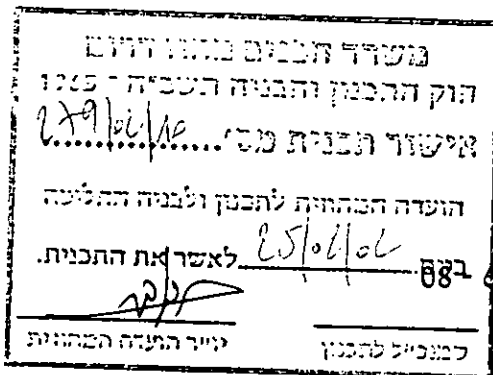 משרד הפנים מחוז דרום
חוק התכנון והבניה תשכ"ה - 1965
אישור תכנית מס'
הועדה המחוזית לתכנון ולבניה החליטה
ביום 25/02/02 לאשר את התכנית.
08-
סמנכ"ל לתכנון
יו"ר הועדה המחוזית